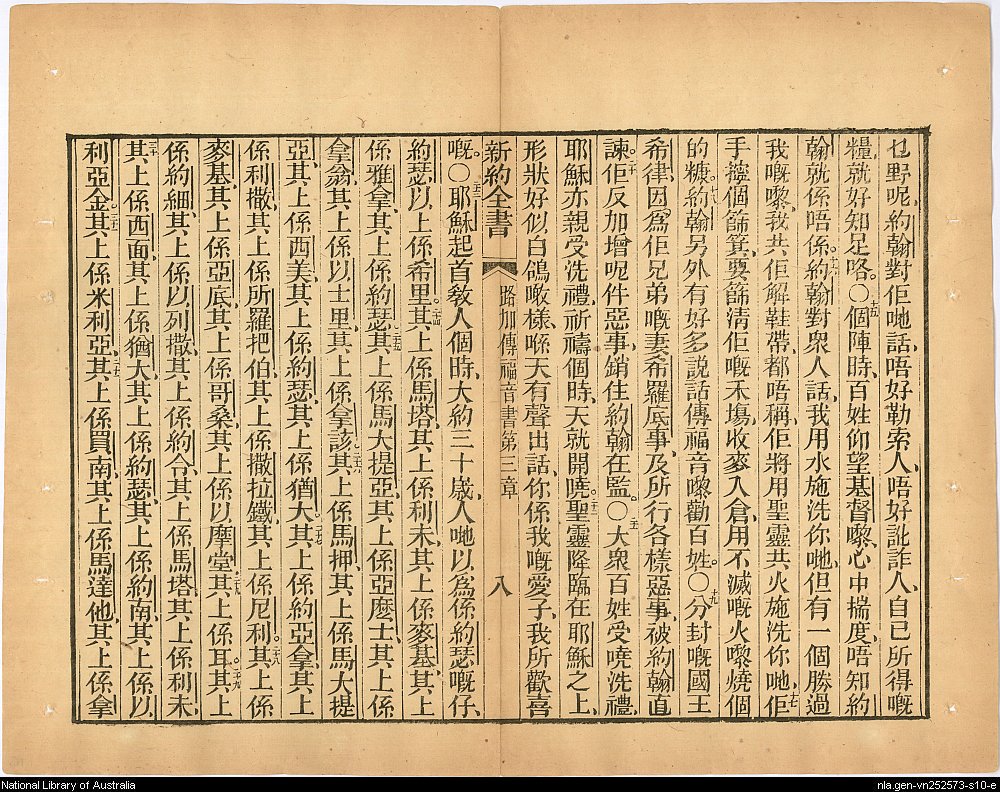 乜野呢約翰對佢哋話唔好勒索人唔好訛詐人自己所得嘅
糧就好知足咯○十五個陣時百姓仰望基督嚟心中揣度唔知約
翰就係唔係十六約翰對衆人話我用水施洗你哋但有一個勝過
我嘅嚟我共佢解鞋帶都唔稱佢將用聖靈共火施洗你哋十七佢
手擰個篩箕要篩淸佢嘅禾塲收麥入倉用不滅嘅火嚟燒個
的糠十八約翰另外有好多說話傳福音嚟勸百姓○十九分封嘅國王
希律因爲佢兄弟嘅妻希羅底事及所行各樣惡事被約翰直
諫二十佢反加增呢件惡事銷住約翰在監○大衆百姓受嘵洗禮
耶穌亦親受洗禮祈禱個時天就開嘵聖靈降臨在耶穌之上
形狀好似白鴿噉樣喺天有聲出話你係我嘅愛子我所歡喜
新約全書 路加傳福音書第三章 八
嘅○耶穌起首敎人個時大約三十歲人哋以爲係約瑟嘅仔
約瑟以上係希里二十四其上係馬塔其上係利未其上係麥基其上
係雅拿其上係約瑟二十五其上係馬大提亞其上係亞麽士其上係
拿翁其上係以士里其上係拿該二十六其上係馬押其上係馬大提
亞其上係西美其上係約瑟其上係猶大二十七其上係約亞拿其上
係利撒其上係所羅把伯其上係撒拉鐵其上係尼利二十八其上係
麥基其上係亞底其上係哥桑其上係以摩堂其上係耳二十九其上
係約細其上係以列撒其上係約令其上係馬塔其上係利未
三十其上係西面其上係猶大其上係約瑟其上係約南其上係以
利亞金三十一其上係米利亞其上係買南其上係馬達他其上係拿
National Library of Australia
nla.gen-vn252573-s10-e